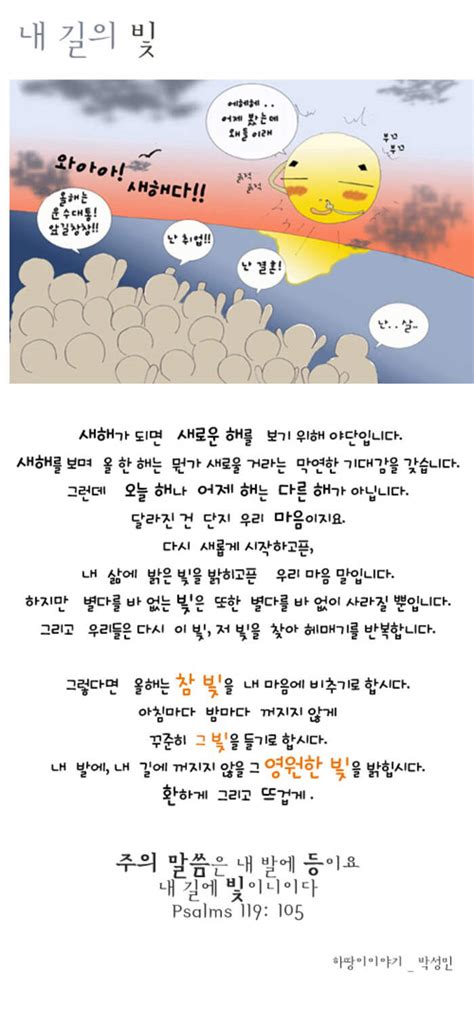 내 길의 빛
에헤헤..
어제 봤는데
왜들 이래
부끄
부끄
긁적
긁적
와아아!
새해다!!
올해는
운수대통!
앞길창창!!
난 취업!!
난 결혼!
난..살..
새해가 되면 새로운 해를 보기 위해 야단입니다.
새해를 보며 올 한 해는 뭔가 새로울 거라는 막연한 기대감을 갖습니다.
그런데 오늘 해나 어제 해는 다른 해가 아닙니다.
달라진 건 단지 우리 마음이지요.
다시 새롭게 시작하고픈,
내 삶에 밝은 빛을 밝히고픈 우리 마음 말입니다.
하지만 별다를 바 없는 빛은 또한 별다를 바 없이 사라질 뿐입니다.
그리고 우리들은 다시 이 빛, 저 빛을 찾아 헤매기를 반복합니다.
그렇다면 올해는 참 빛을 내 마음에 비추기로 합시다.
아침마다 밤마다 꺼지지 않게
꾸준히 그 빛을 들기로 합시다.
내 발에, 내 길에 꺼지지 않을 그 영원한 빛을 밝힙시다.
환하게 그리고 뜨겁게.
주의 말씀은 내 발에 등이요
내 길에 빛이니이다
Psalms 119: 105
하땅이이야기 _ 박성민